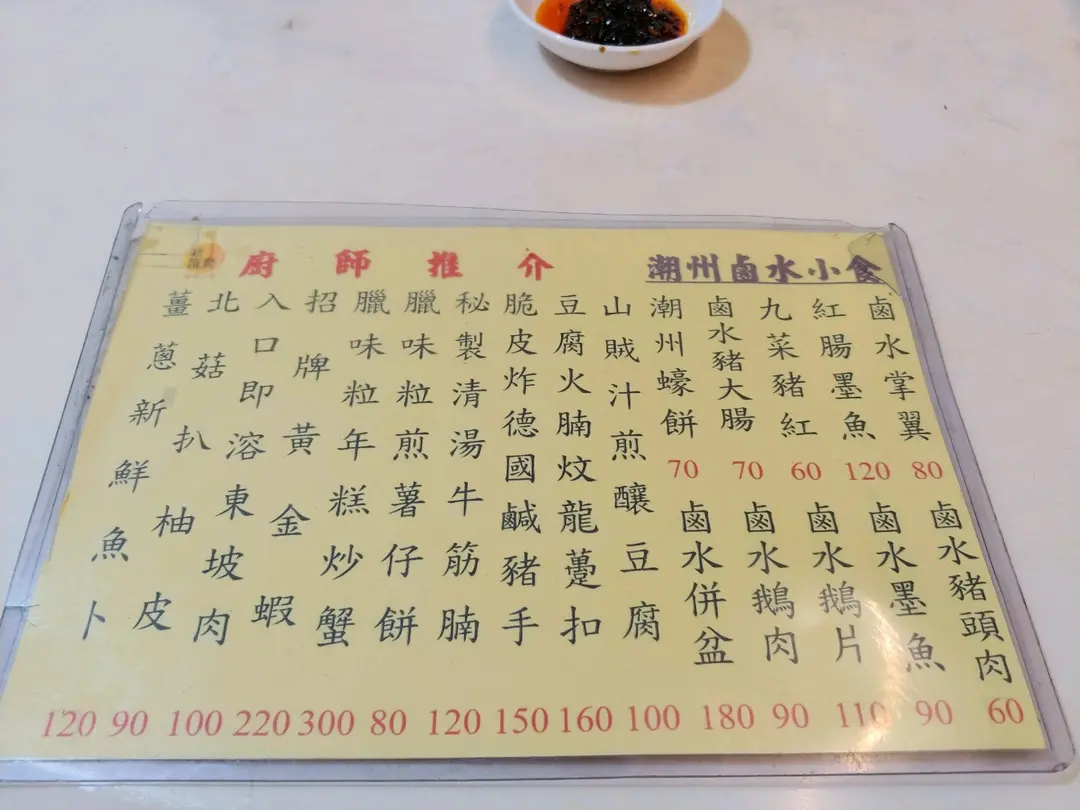 廚師推介
薑蔥新鮮魚卜
120
北菇扒柚皮
90
入口即溶東坡肉
100
招牌黃金蝦
220
臘味粒年糕炒蟹
300
臘味粒煎薯仔餅
80
秘製清湯牛筋腩
120
脆皮炸德國鹹豬手
150
豆腐火腩炆龍躉扣
160
山賊汁煎釀豆腐
100
潮州鹵水小食
潮州蠔餅
70
鹵水豬大腸
70
九菜豬紅
60
紅腸墨魚
120
鹵水掌翼
80
鹵水併盆
180
鹵水鵝肉
90
鹵水鵝片
110
鹵水墨魚
90
鹵水豬頭肉
60